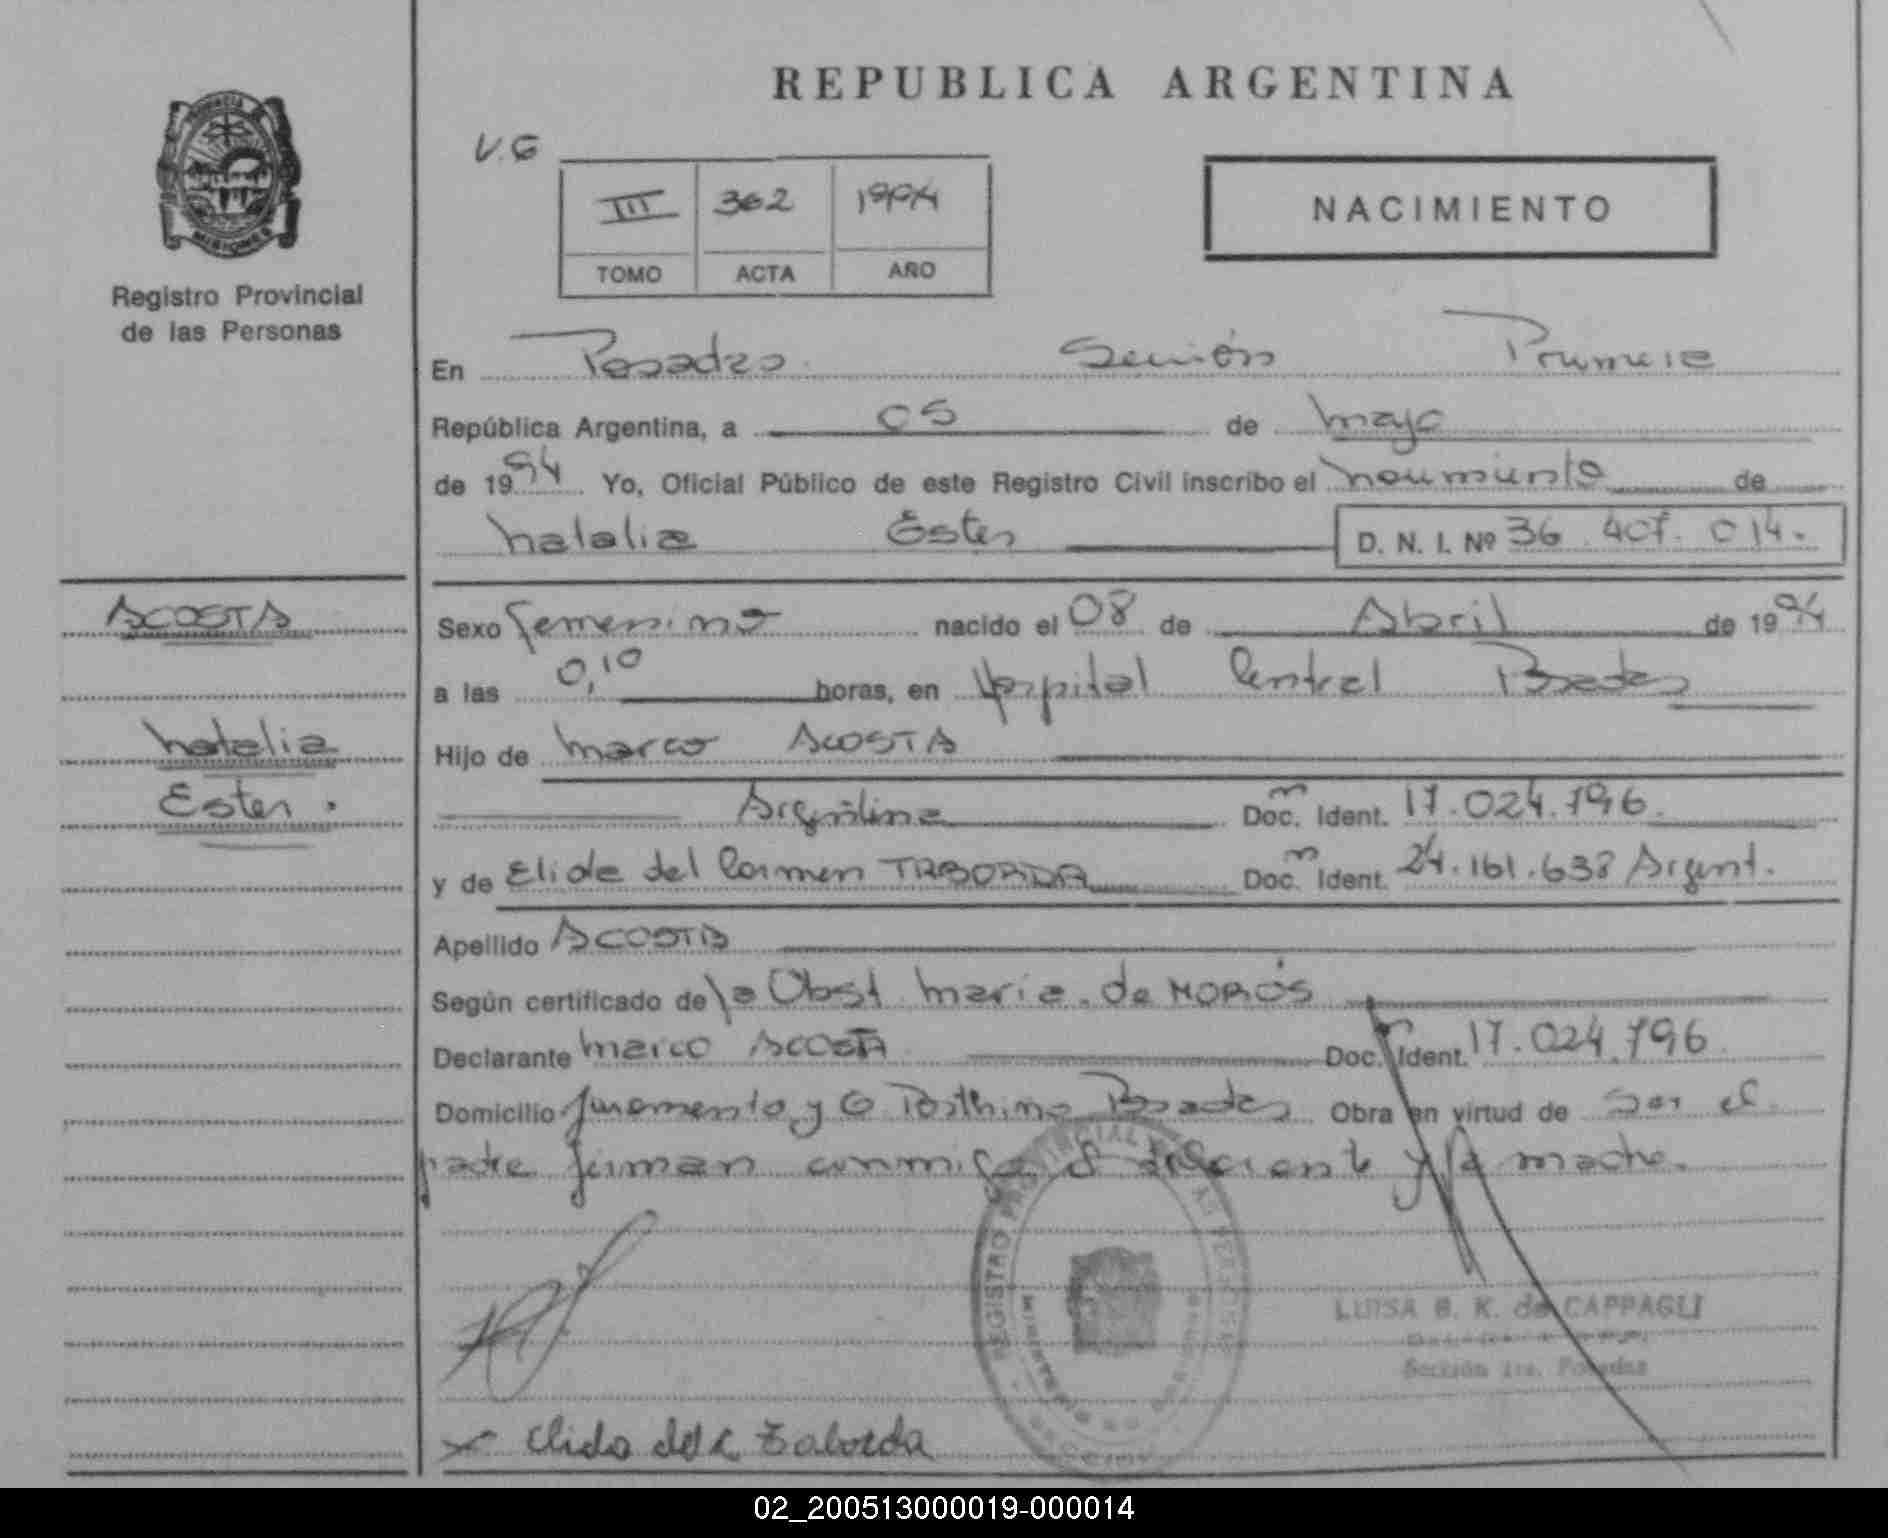 REPUBLICA ARGENTINA
V.G
III 362 1994
TOMO ACTA AÑO
NACIMIENTO
PROVINCIA
MISIONES
Registro Provincial
de las Personas
En Posadas Sección Primera
República Argentina, a 05 de mayo
de 1994 Yo, Oficial Público de este Registro Civil inscribo el nacimiento de
Natalia Ester D. N. I. Nº 36.407.014.
ACOSTA
Natalia
Ester.
Sexo femenino nacido el 08 de Abril de 1994
a las 0,10 horas, en Hospital Central Posadas
Hijo de Marco ACOSTA
Argentina Doc. Ident. 17.024.796.
y de Elida del Carmen TABORDA Doc. Ident. 24.161.638 Argent.
Apellido ACOSTA
Según certificado de la Obst. Maria de MOROS
Declarante Marco ACOSTA Doc. Ident. 17.024.796
Domicilio Juramento y G Posadas Obra en virtud de Ser el
padre firman conmigo el y la madre.
REGISTRO PROVINCIAL DE LAS PERSONAS
MINISTERIO DE GOBIERNO
LUISA B. K. de CAPPAGLI
Sección 1ra. Posadas
x Elida del C Taborda
02_200513000019-000014